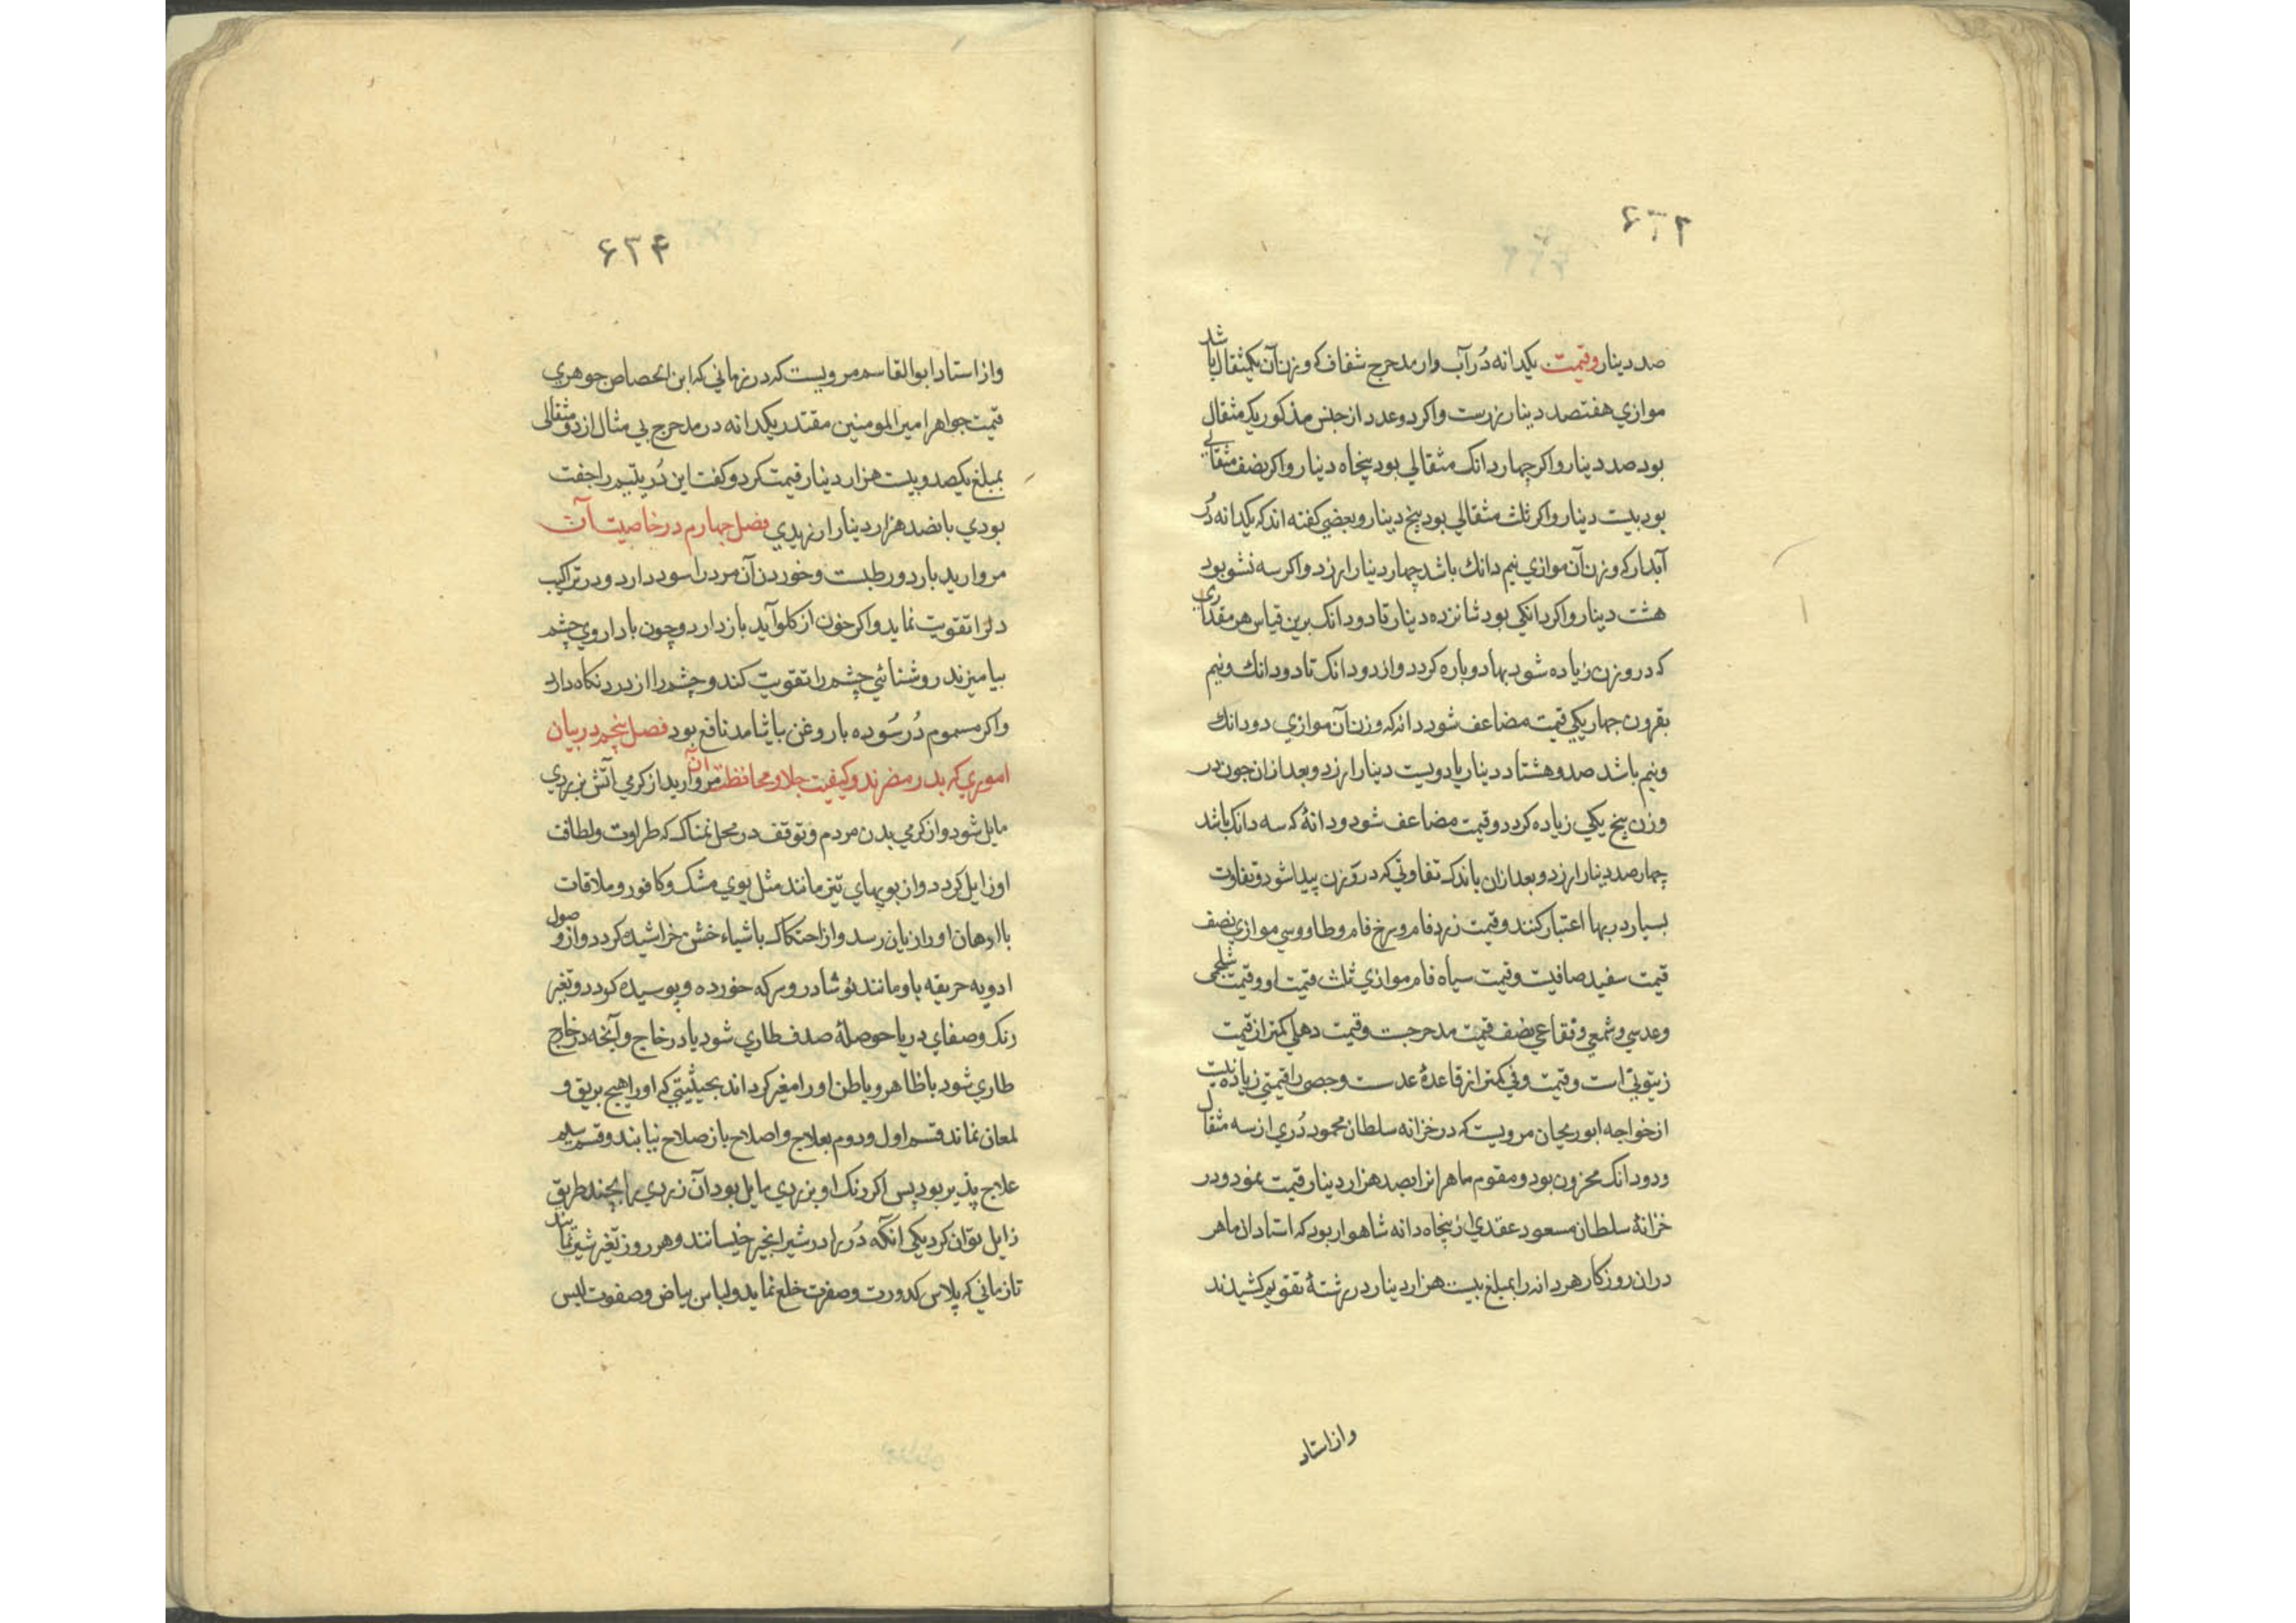 ۶۳۲
صد دینار وقیمت یکدانه دُر آب وار مدحرج شفاف که وزن آن یکمثقال باشد
موازي هفتصد دینار زرست واکر دو عدد از جنس مذکور یک مثقال
بود صد دینار واکر چهار دانک مثقالي بود پنجاه دینار واکر نصف مثقالي
بود بیست دینار واکر ثلث مثقالي بود پنج دینار وبعضي کفته اند که یکدانه دُر
آبدار که وزن آن موازي نیم دانك باشد چهار دینار ارزد واکر سه تسّو بود
هشت دینار واکر دانکي بود شانزده دینار تا دودانک برین قیاس هر مقداری
که در وزن زیاده شود بها دوباره کردد واز دودانک تا دودانك ونیم
بقرون چهاریکي قیمت مضاعف شود دانه که وزن آن موازي دودانك
ونیم باشد صد وهشتاد دینار یا دویست دینار ارزد وبعد ازان چون در
وزن پنج یکي زیاده کردد وقیمت مضاعف شود ودانۀ که سه دانک باشد
چهارصد دینار ارزد وبعد ازان باندک تفاوتي که در وزن پیدا شود تفاوت
بسیار در بها اعتبار کنند وقیمت زرد فام وسرخ فام وطاووسي موازي نصف
قیمت سفید صافیست وقیمت سیاه فام موازي ثلث قیمت او وقیمت شلجمی
وعدسي وشمعي وفقاعي نصف قیمت مدحرجست وقیمت دهلي کمتر از قیمت
زیتوني است وقیمت وفي کمتر از قاعدۀ عدست وجصي را قیمتي زیاده نیست
از خواجه ابوریحان مرویست که در خزانه سلطان محمود دُري از سه مثقال
ودودانک مخزون بود ومقوم ماهر انرا بصد هزار دینار قیمت نمود ودر
خزانۀ سلطان مسعود عقدي از پنجاه دانه شاهوار بود که استادان ماهر
دران روزکار هر دانه را بمبلغ بیست هزار دینار در رشتۀ تقویم کشیدند
واز استاد
۶۳۴
واز استاد ابوالقاسم مرویست که در زماني که ابن الحصاص جوهري
قیمت جواهر امیر المومنین مقتدر یکدانه در مدحرج بي مثال از دو مثقالی
بمبلغ یکصد وبیست هزار دینار قیمت کرد وکفت این دُر یتیم را جفت
بودي بانصد هزار دینار ارزیدي فصل چهارم در خاصیت آن
مروارید بارد ورطبست وخوردن آن مرد را سود دارد ودر تراکیب
دل را تقویت نماید واکر خون از کلو آید باز دارد وچون با داروي چشم
بیامیزند روشنائي چشم را تقویت کند وچشم را از درد نکاه دارد
واکر مسموم دُر سُوده با روغن بیاشامد نافع بود فصل پنجم در بیان
اموري که بدر مضرند وکیفیت جلا ومحافظت آن مروارید از کرمي آتش بزردي
مایل شود واز کرمي بدن مردم وتوقف در محل نمناک که طراوت ولطافت
او زایل کردد واز بویهاي تیز مانند مثل بوي مشک وکافور وملاقات
باادهان اورا زیان رسد واز احتکاک باشیاء خشن خراشیده کردد واز وصول
ادویه حریقه باو مانند نوشادر وسرکه خورده وپوسیده کردد وتغیر
رنک وصفاي در یا حوصلۀ صدف طاري شود یا در خارج وآنچه در خارج
طاري شود یا ظاهر وباطن اورا مغیر کرداند بحیثیتي که اورا هیچ بریق و
لمعان نماند قسم اول ودوم بعلاج واصلاح باز صلاح نیابند وقسم سیم
علاج پذیر بود پس اکر رنک او بزردي مایل بود آن زردي را بچند طریق
زایل توان کرد یکي آنکه دُر را در شیر انجیر خیسانند وهر روز تغیر شیر نمایند
تا زماني که پلاس کدورت وصفرت خلع نماید ولباس بیاض وصفوت لبس